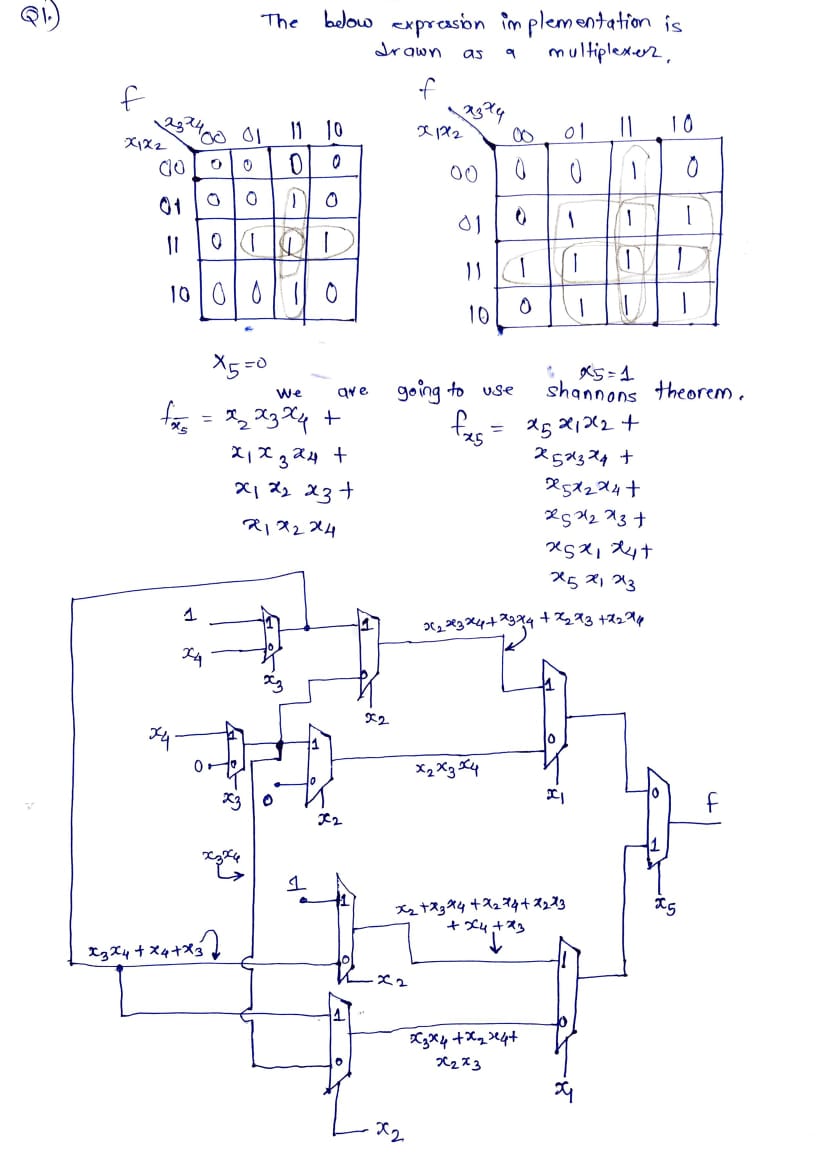 Q1.)
The below expression implementation is
drawn as a multiplexer.
f
x3x4
x1x2
00 01 11 10
00 0 0 0 0
01 0 0 1 0
11 0 1 1 1
10 0 0 1 0
x5=0
f
x3x4
x1x2
00 01 11 10
00 0 0 1 0
01 0 1 1 1
11 1 1 1 1
10 0 1 1 1
x5=1
we are going to use shannons theorem.
fx̄5 = x2 x3 x4 +
x1 x3 x4 +
x1 x2 x3 +
x1 x2 x4
fx5 = x5 x1 x2 +
x5 x3 x4 +
x5 x2 x4 +
x5 x2 x3 +
x5 x1 x4 +
x5 x1 x3
1
1
x4
0
x3
1
0
x2
x2x3x4 + x3x4 + x2x3 + x2x4
1
0
x1
x4
1
0
0
x3
1
0
0
x2
x2x3x4
0
1
x5
f
x3x4
1
1
0
x2
x2+x3x4+x2x4+x2x3
+ x4 + x3
x3x4 + x4 + x3
1
0
x2
x3x4 + x2x4 +
x2x3
1
0
x1